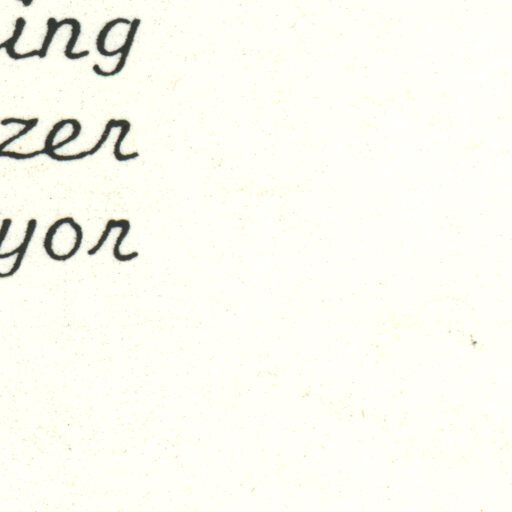 ing
zer
yor